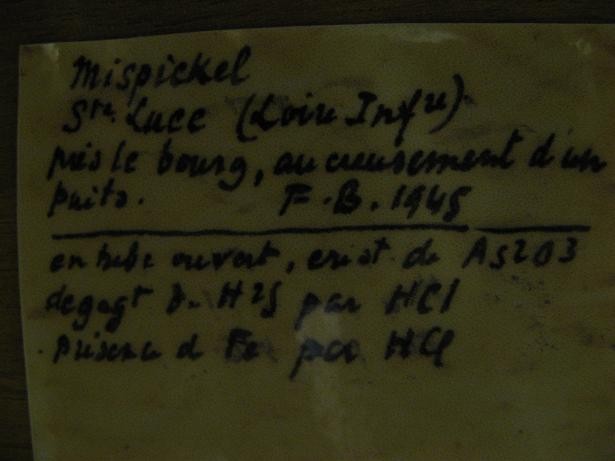 Mispickel
Ste. Luce (Loire Infre)
près le bourg, au creusement d'un
puits. F.B. 1945
en tube ouvert, de As2O3
degagt de H2S par HCl
présence de Fe par HCl